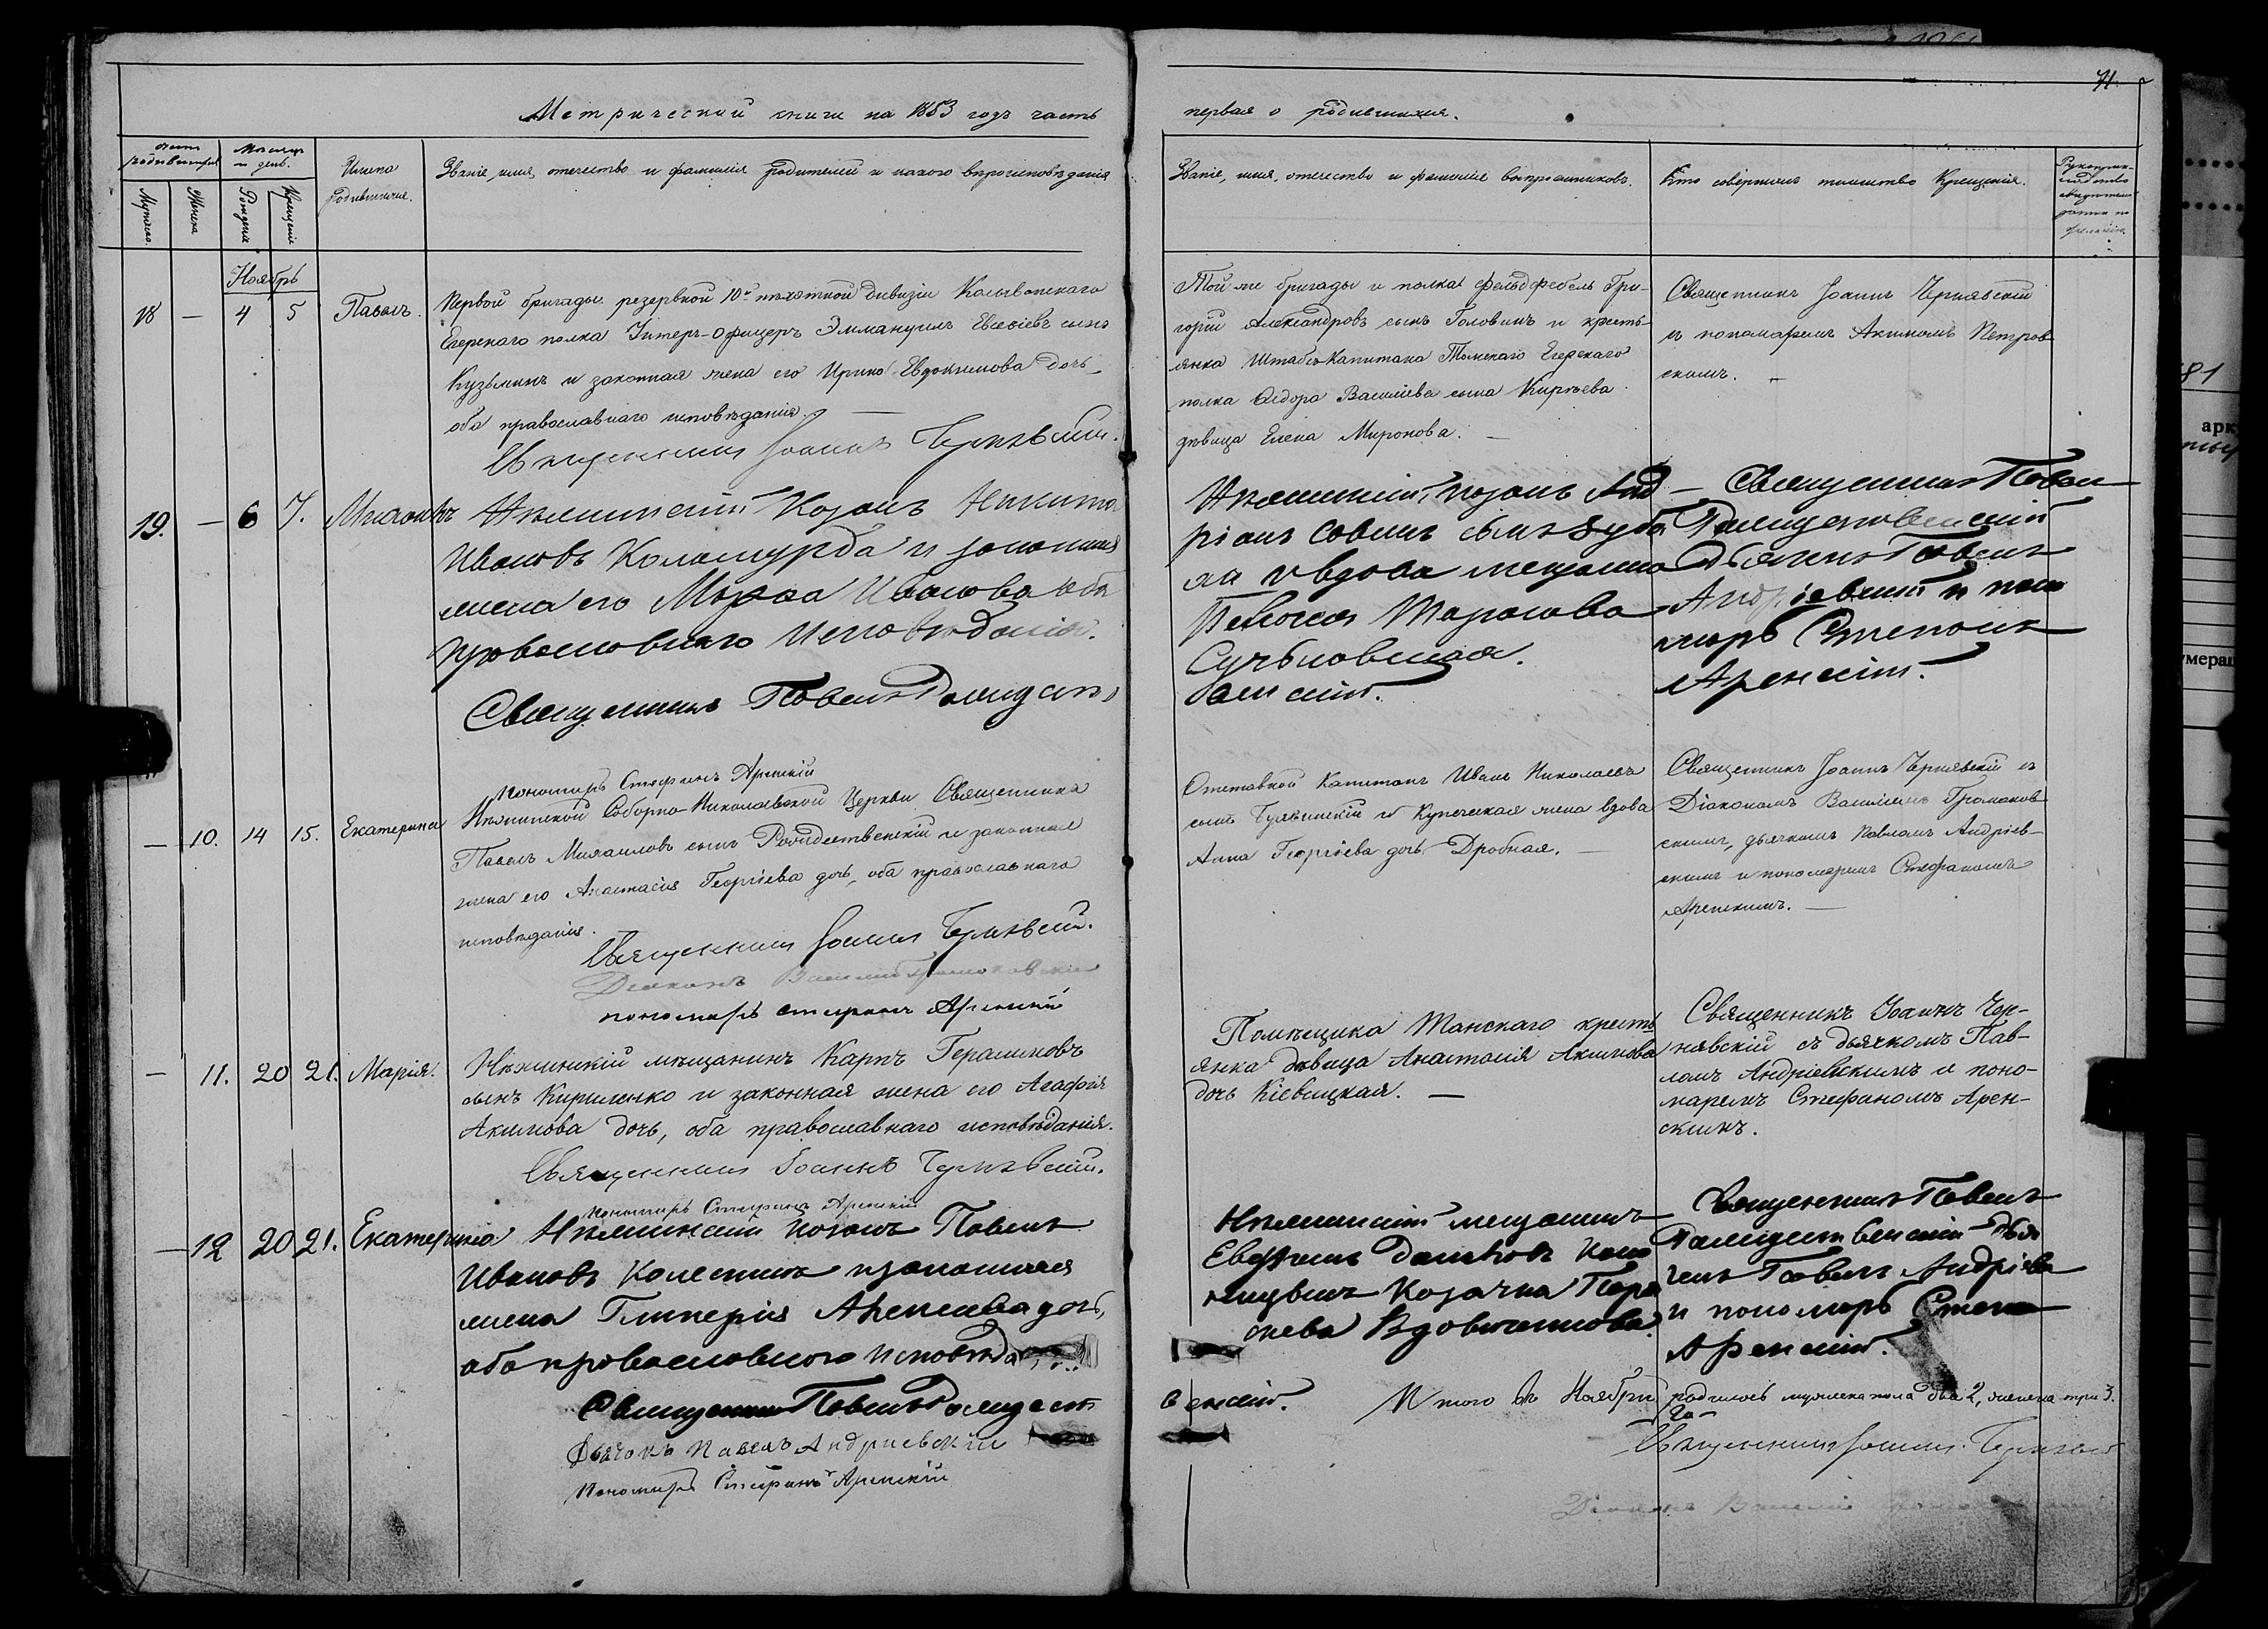 71.
Метрической книги на 1853 годъ часть
первая о родившихся.
Счетъ родившихся
Месяцъ и день.
Мужеска.
Женска
Рожденія
Крещенія
Имена родившихся.
Званіе, имя, отечество и фамилія родителей и какого вѣроисповѣданія
Званіе, имя, отечество и фамилія воспріемниковъ.
Кто совершилъ таинство Крещенія.
Ноябрь
18 — 4 5 Павелъ.
Первой бригады резервной 10й пехотной дивизіи Колыванскаго
Егерскаго полка Унтеръ-Офицеръ Эммануилъ Евсевіевъ сынъ
Кузьминъ и законная жена его Ирина Евдокимова дочь
оба православнаго исповѣданія. —
Священникъ Іоаннъ Чернявскій.
Той же бригады и полка фельдфебель Гри-
горій Александровъ сынъ Головинъ и кресть-
янка Штабсъ-Капитана Томскаго Егерскаго
полка Ѳедора Васильева сына Кирѣева
дѣвица Елена Миронова. —
Священникъ Іоаннъ Чернявскій
съ пономаремъ Акимомъ Петров
скимъ. —
19. — 6 7. Михаилъ
Нѣжинскій Козакъ Никита
Ивановъ Коломурда и законная
жена его Марѳа Иванова оба
православнаго исповѣданія.
Священникъ Павелъ Рождест
Нѣжинскій козакъ Анд
ріанъ Савинъ сынъ Зуба
ха и вдова мещанка
Тарасова
венскій.
— Священникъ Павел
Рождественскій
Дьячекъ Павелъ
Андріевскій и поно
марь Стефанъ
Аренскій.
Пономарь Стефанъ Аренскій
— 10. 14 15. Екатерина
Нѣжинской Соборно-Николаевской Церкви Священника
Павелъ Михаиловъ сынъ Рождественскій и законная
жена его Анастасія Георгіева дочь, оба православнаго
исповѣданія.
Священникъ Іоаннъ Чернявскій.
Діаконъ Василій Громаковскій
пономарь Стефанъ Аренскій
Отставной Капитанъ Иванъ Николаевъ
сынъ и Купеческая жена вдова
Анна Георгіева дочь Дробная. —
Священникъ Іоаннъ Чернявскій съ
Діакономъ Василіемъ Громаков
скимъ, дьячкомъ Павломъ Андріев-
скимъ и пономаремъ Стефаномъ
Аренскимъ. —
— 11. 20 21. Марія.
Нѣжинскій мѣщанинъ Карпъ Герасимовъ
сынъ Кириленко и законная жена его Агафія
Акимова дочь, оба православнаго исповѣданія.
Священникъ Іоаннъ Чернявскій.
Пономарь Стефанъ Аренскій
Помѣщика Танскаго кресть
янка дѣвица Анастасія Акимова
дочь Кіевицкая. —
Священникъ Іоаннъ Чер-
нявскій съ дьячкомъ Пав-
ломъ Андріевскимъ и поно-
маремъ Стефаномъ Арен-
скимъ.
— 12 20 21. Екатерина
Нѣжинскій козакъ Павелъ
Ивановъ Колесникъ и законная
жена Гликерія дочь,
оба православнаго исповѣда
Священникъ Павелъ Рождест
Дьячокъ Павелъ Андриевскій
Пономарь Стефанъ Аренскій
Нѣжинскій мещанинъ
козачка Пара
скева Вдовиченкова.
венскій.
Священникъ Павелъ
Рождественскій Дья
чекъ Павелъ Андріевс
и пономарь Стефа
Аренскій.
Итого въ Ноябрѣ родилось мужеска пола два 2, женска три 3.
Священникъ Іоаннъ Чернявскій
Діаконъ Василій